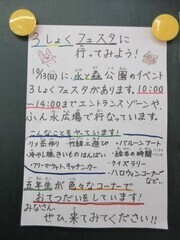 ３しょくフェスタに
行ってみよう！
10/13(日)に、水と森公園のイベント
３しょくフェスタがあります。10:00
〜14:00までエントランスゾーンや、
ふん水広場で行なっています。
こんなことをやっています！
・リメ缶作り ・竹細工遊び ・バルーンアート
・冷やし焼きいものはんばい ・絵本の時間
・フリーマーケット,キッチンカー ・クイズラリー
・ハロウィンコーナー
など…
五年生が色々なコーナーで
おてつだいをしています！
みなさん、
ぜひ、来てみてください!!